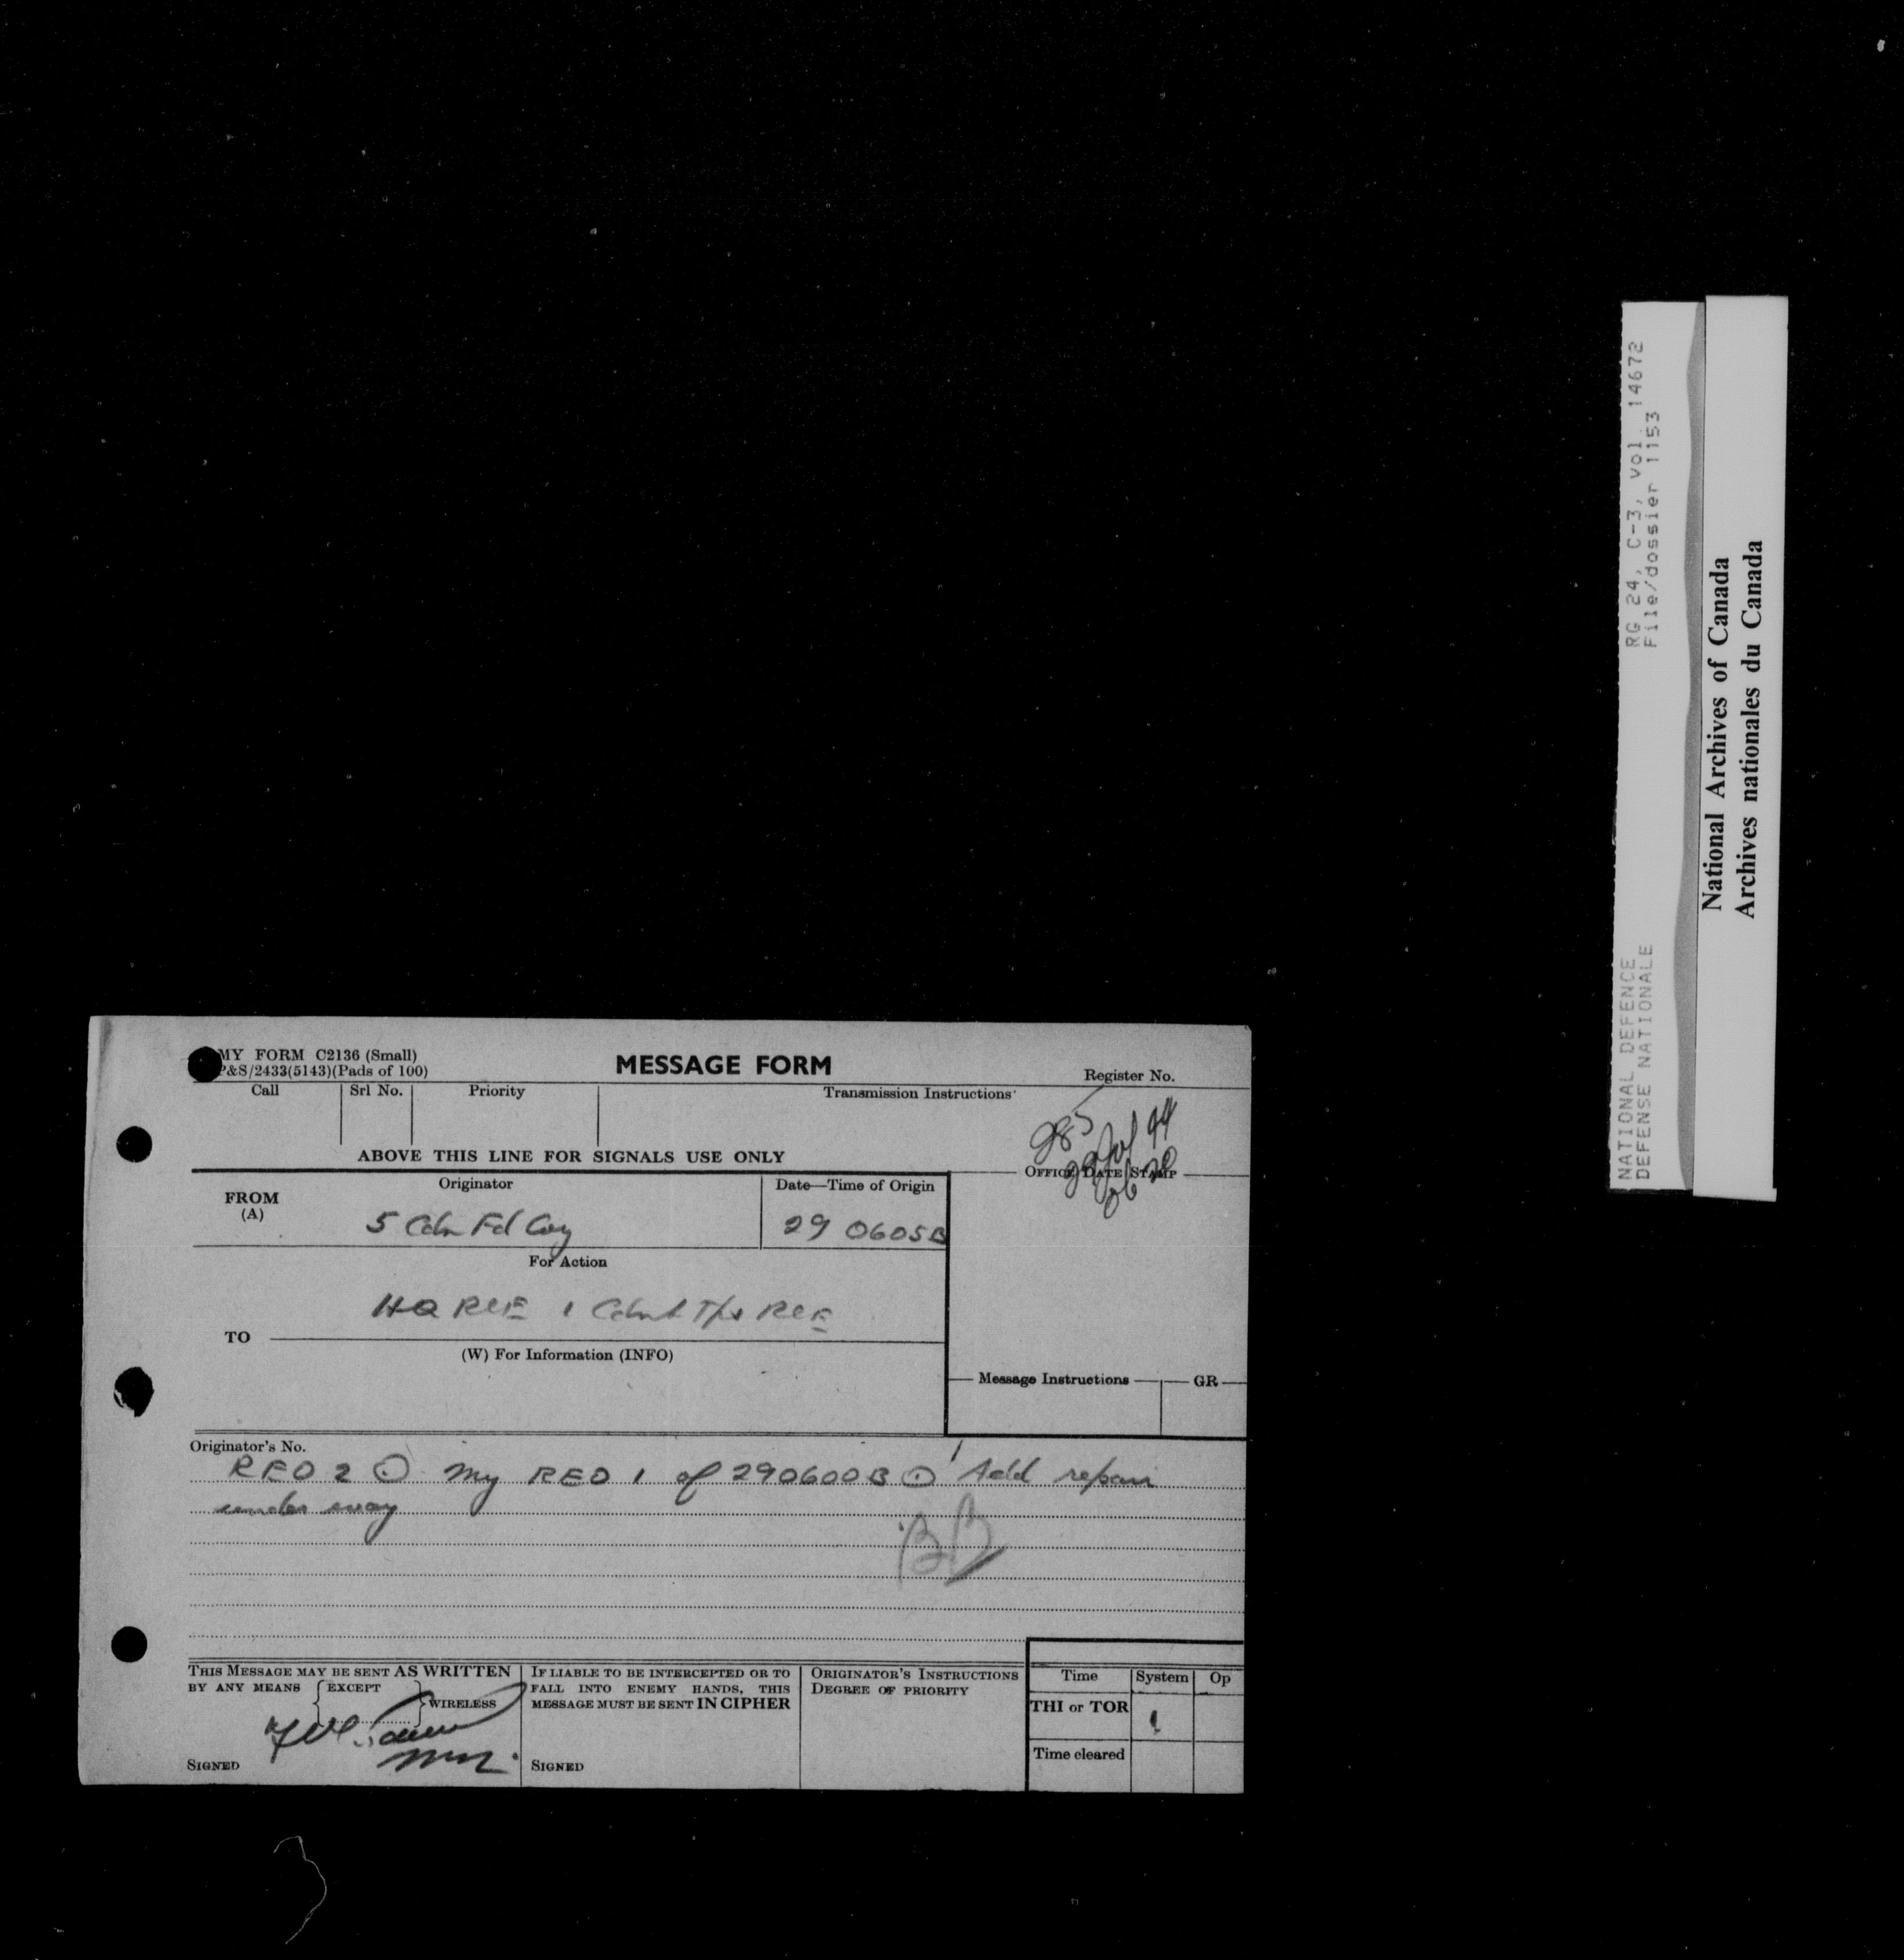 MY FORM C2136 (Small)
P&S/2433(5143)(Pads of 100)
MESSAGE FORM
Register No.
Call Srl No. Priority Transmission Instructions
285
29 Jul 44
ABOVE THIS LINE FOR SIGNALS USE ONLY
OFFICE DATE STAMP
FROM
(A)
Originator
Date—Time of Origin
5 Cdn Fd Coy
29 0605B
For Action
HQ RCE 1 Cdn A Tps RCE
TO
(W) For Information (INFO)
Message Instructions GR
Originator's No.
REO 2 ⊙ My REO 1 of 290600B ⊙ Add repair
under way
BB
THIS MESSAGE MAY BE SENT AS WRITTEN
BY ANY MEANS EXCEPT
WIRELESS
SIGNED
IF LIABLE TO BE INTERCEPTED OR TO
FALL INTO ENEMY HANDS, THIS
MESSAGE MUST BE SENT IN CIPHER
SIGNED
ORIGINATOR'S INSTRUCTIONS
DEGREE OF PRIORITY
Time System Op
THI or TOR
Time cleared
RG 24, C-3, vol. 14672
File/dossier 1153
NATIONAL DEFENCE
DEFENSE NATIONALE
National Archives of Canada
Archives nationales du Canada